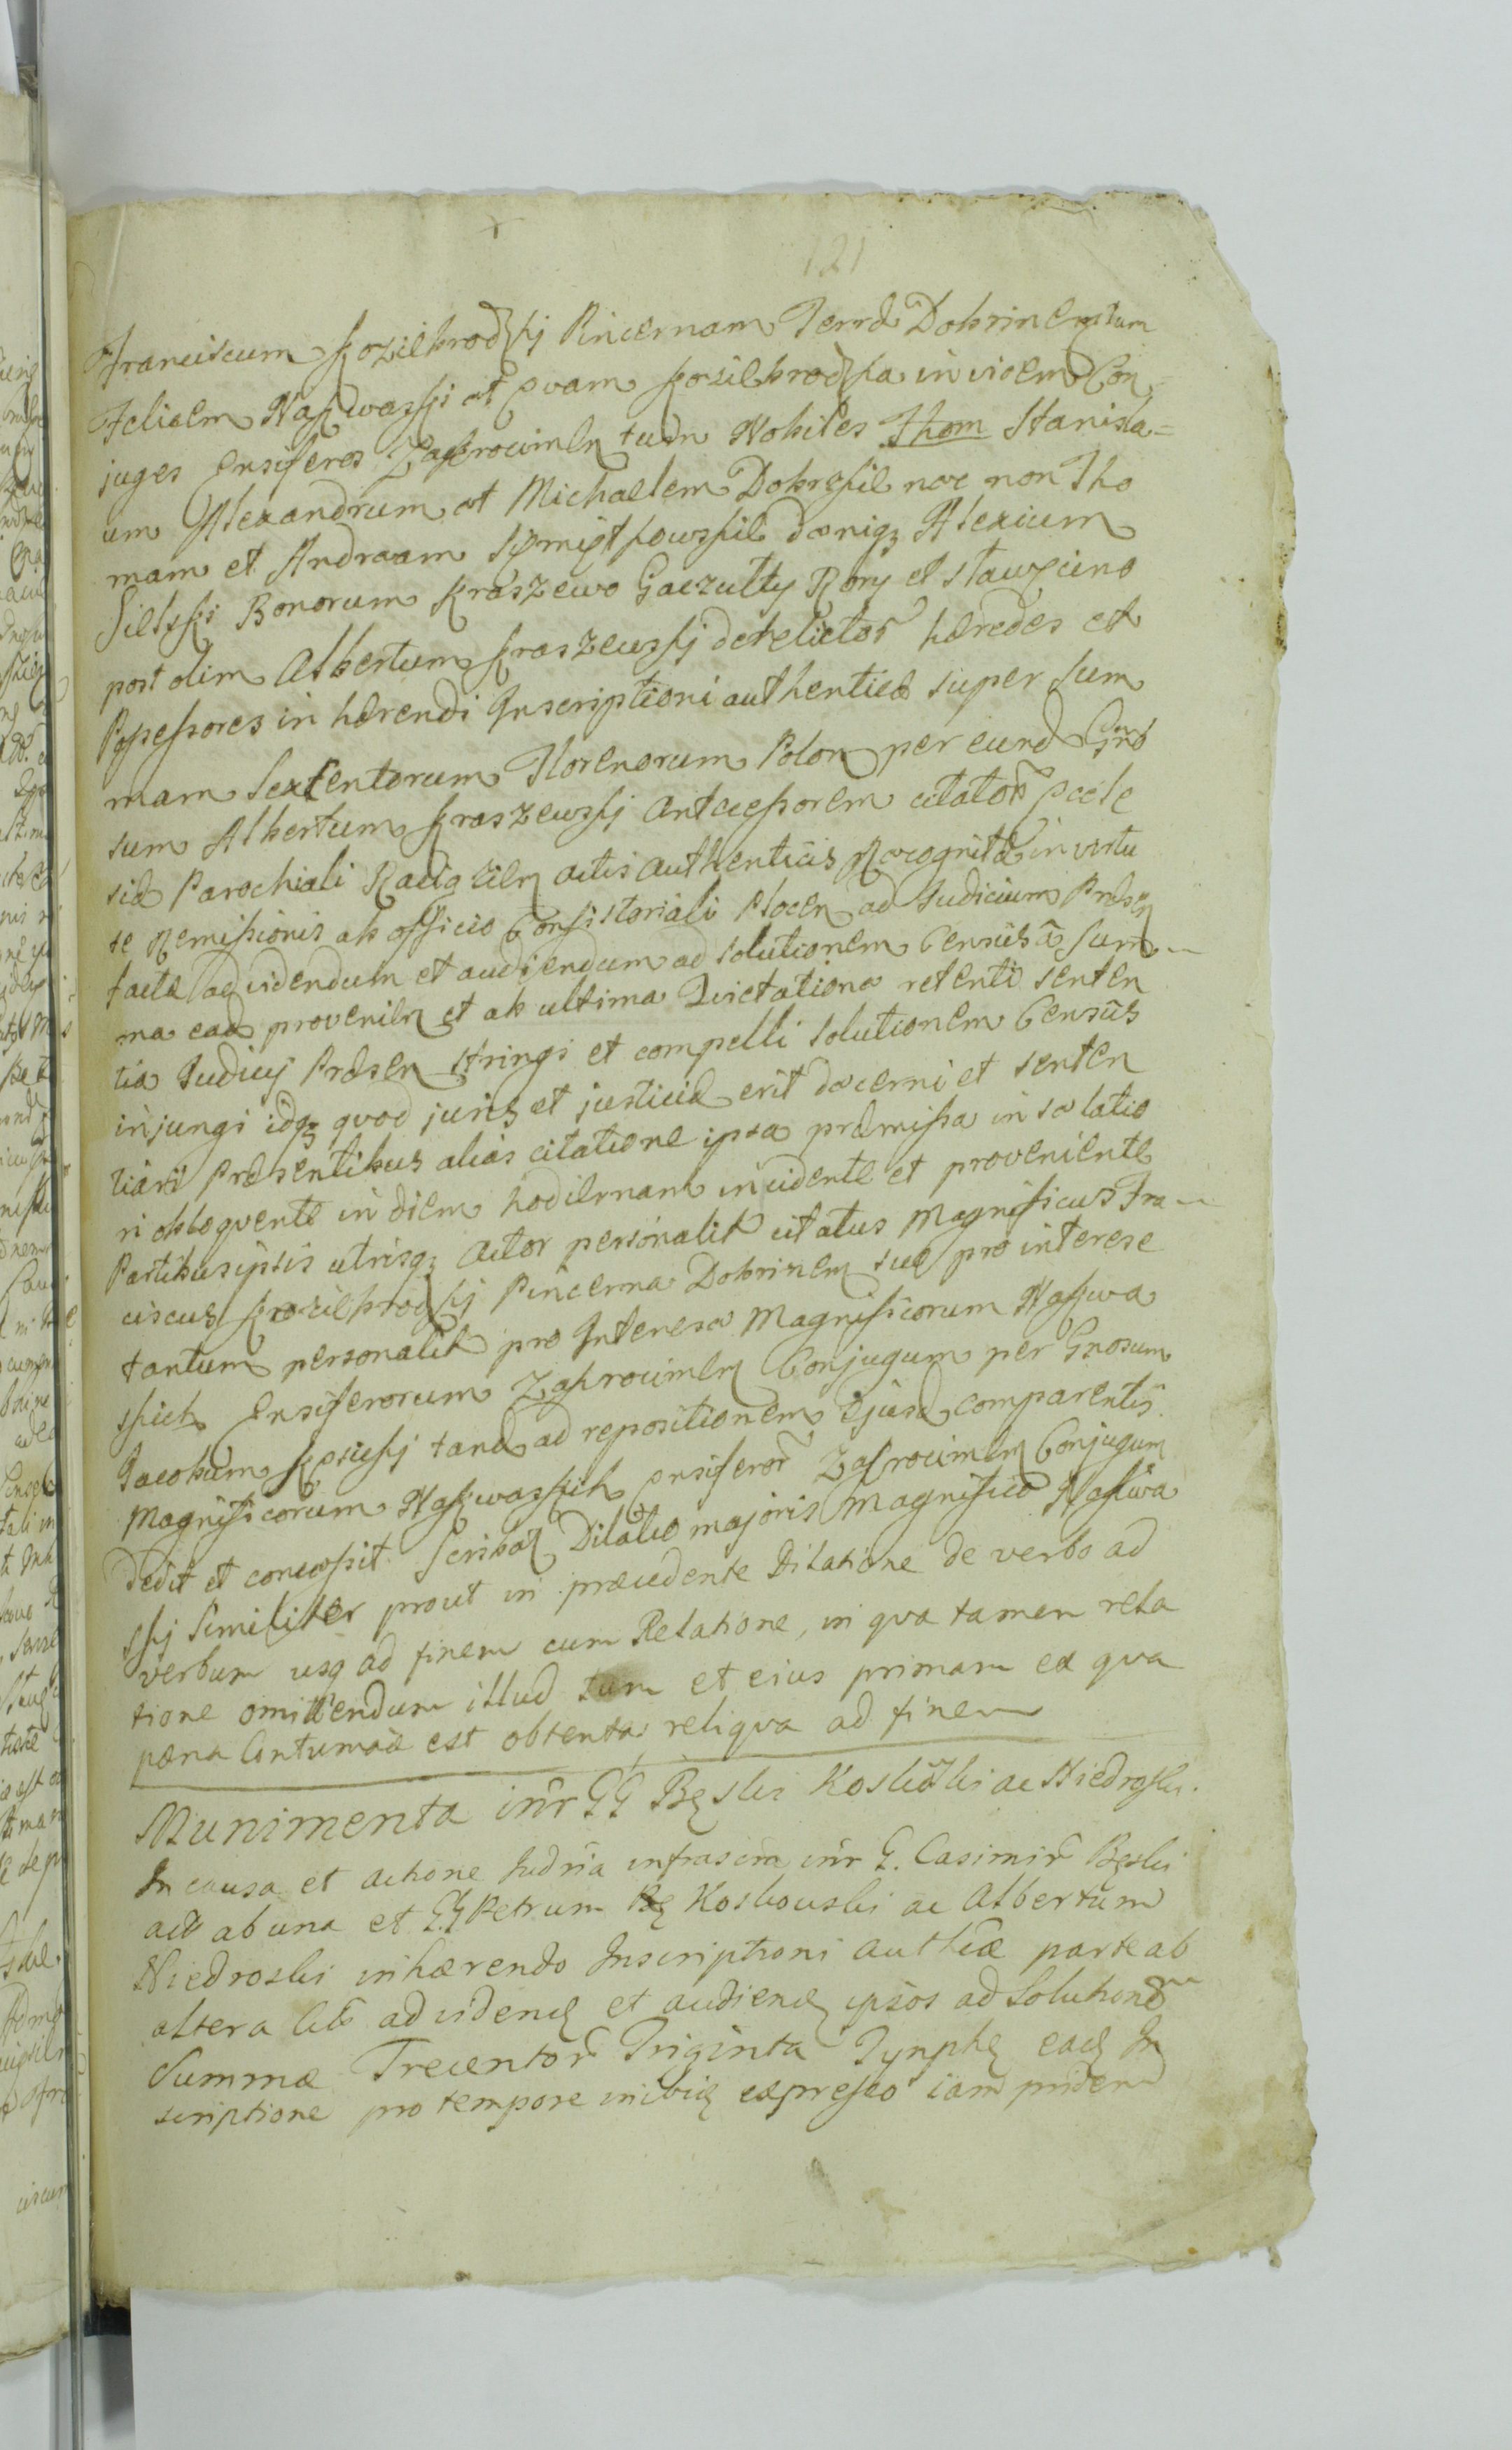 121
Franciscum Kozilbrodzkj Pincernam Terræ Dobrinensium
Felicem Naszwaskj et Evam Kozilbrodzka invicem Con=
juges Ensiferos Zakrocimen tudn Nobiles Thom Stanisla=
um Alexandrum et Michaelem Dobrskie nec non Tho
mam et Andream denig3 Alexium
Bonorum Kraszewo Gaczulty Rory et Slawęcino
post olim Albertum Kraszewskj derelictor hæredes et
Possessores in hærendi Inscriptioni authenticæ super sum
mam Sexcentorum Florenorum Polon per eund Gnro
sum Albertum Kraszewskj Antecessorem citator Eccle
siæ Parochiali Raciązien actis authenticis Recognitæ in virtu
te Remissionis ab officio Consistoriali Plocen ad Judicium Præsen
factæ ad videndum et audiendum ad solutionem Censūs à sum
ma ead provenien et ab ultima Quietatione retenti senten
tia Judicij Præsen stringi et compelli Solutionem Censūs
injungi idq3 quod juris et justiciæ erit decerni et senten
tiari Præsentibus alias citatione ipsa præmissa in sa latio
ri obloquente in diem hodiernam incidente et proveniente
Partibus ipsis utrisq3 Actor personalit citatus Magnificus Fra
ciscus Kozielbrodzkj Pincerna Dobrinen suo pro interese
tantum personalit pro Interese Magnificorum Naszwa
skich Ensiferorum Zakrocimen Conjugum per Gnosum
Jacobum tand ad repositionem Ejusd comparentis
Magnificorum Naszwaskich Ensiferor Zakrocimen Conjugum
dedit et concessit Scribat Dilatio majoris Magnifico Naszwa
skj Similiter prout in præcedente Dilatione de verbo ad
verbum usq ad finem cum Relatione, in qva tamen rela
tione omittendum illud tum et eius primam ex qva
pæna Contumaciæ est obtenta reliqva ad finem
Munimenta inr GG Bęski Koskowski ac Niedroski.
In causa et actione Judria infrascra inr G. Casimir Bęski
act ab una et GG Petrum Bę Koskowski ac Albertum
Niedroski inhærendo Inscriptioni authcæ parte ab
altera Citt ad videnđ et audienđ ipsos ad Solutionem
Summæ Trecentor Triginta Tynphę eađ In
scriptione pro tempore inibiq expresso iam pridem